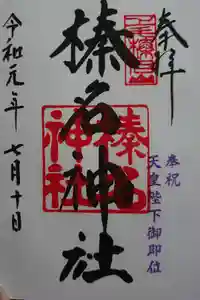 奉拝
奉祝
天皇陛下御即位
榛名神社
榛名神社
令和元年 七月十日